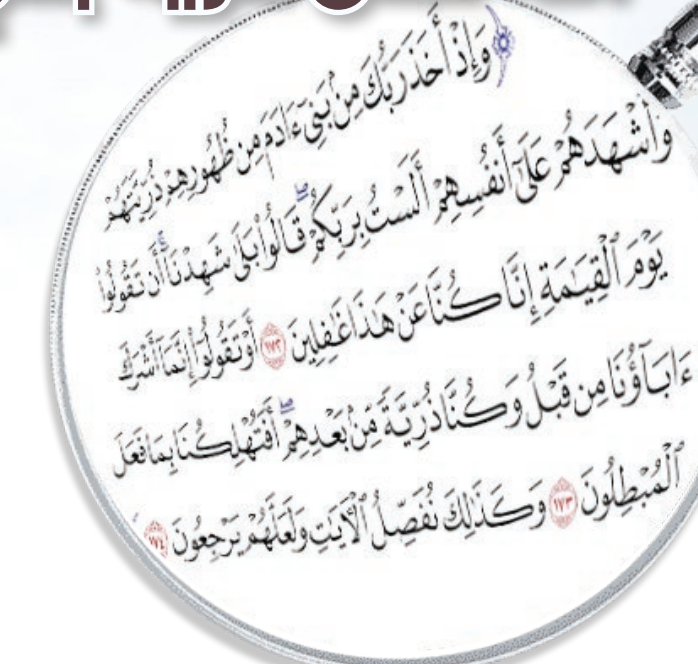 وَإِذْ أَخَذَ رَبُّكَ مِنۢ بَنِىٓ ءَادَمَ مِن ظُهُورِهِمْ ذُرِّيَّتَهُمْ
وَأَشْهَدَهُمْ عَلَىٰٓ أَنفُسِهِمْ أَلَسْتُ بِرَبِّكُمْ ۖ قَالُوا۟ بَلَىٰ شَهِدْنَآ ۚ أَن تَقُولُوا۟
يَوْمَ ٱلْقِيَـٰمَةِ إِنَّا كُنَّا عَنْ هَـٰذَا غَـٰفِلِينَ ١٧٢ أَوْ تَقُولُوٓا۟ إِنَّمَآ أَشْرَكَ
ءَابَآؤُنَا مِن قَبْلُ وَكُنَّا ذُرِّيَّةً مِّنۢ بَعْدِهِمْ ۖ أَفَتُهْلِكُنَا بِمَا فَعَلَ
ٱلْمُبْطِلُونَ ١٧٣ وَكَذَٰلِكَ نُفَصِّلُ ٱلْـَٔايَـٰتِ وَلَعَلَّهُمْ يَرْجِعُونَ ١٧٤